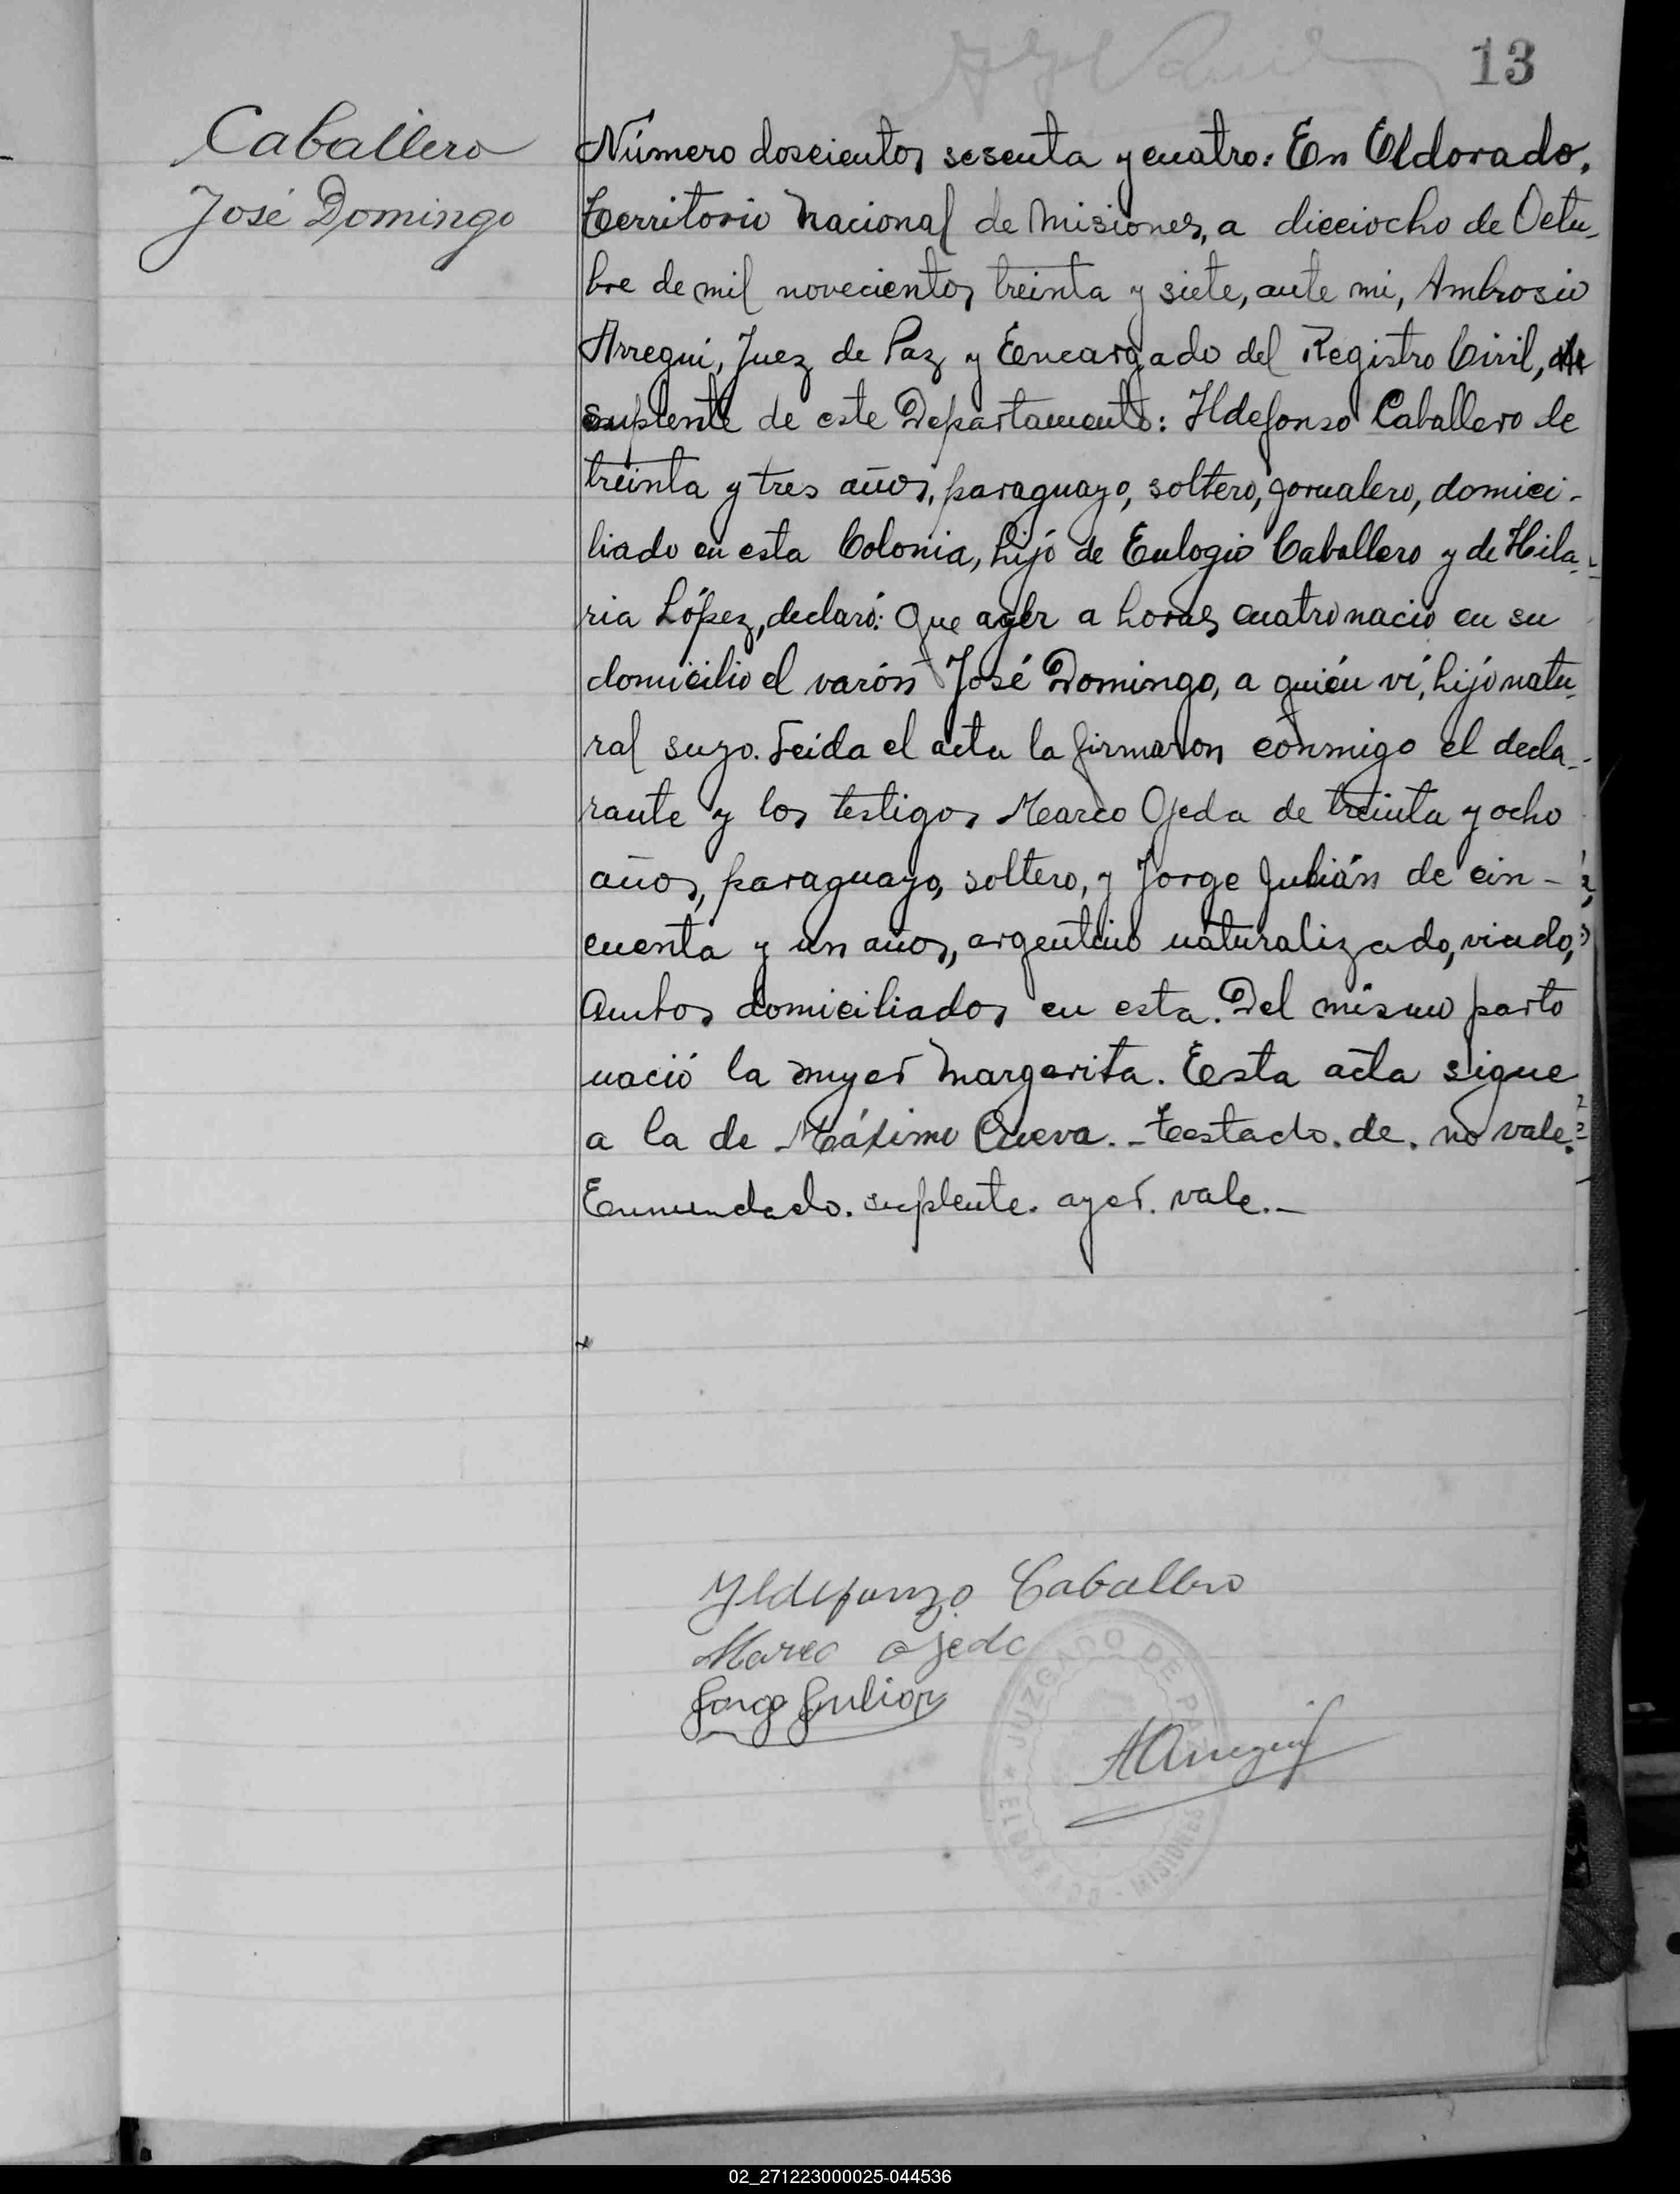 13
Caballero
José Domingo
Número doscientos sesenta y cuatro: En Eldorado,
Territorio Nacional de Misiones, a dieciocho de Octu-
bre de mil novecientos treinta y siete, ante mi, Ambrosio
Arregui, Juez de Paz y Encargado del Registro Civil, de
suplente de este Departamento: Ildefonso Caballero de
treinta y tres años, paraguayo, soltero, jornalero, domici-
liado en esta Colonia, hijo de Eulogio Caballero y de Hila-
ria López, declaró: Que ayer a horas cuatro nació en su
domicilio el varón José Domingo, a quién ví, hijo natu-
ral suyo. Leida el acta la firmaron conmigo el decla-
rante y los testigos Marco Ojeda de treinta y ocho
años, paraguayo, soltero, y Jorge Julián de cin-
cuenta y un años, argentino naturalizado, viudo,
ambos domiciliados en esta. Del mismo parto
nació la mujer Margarita. Esta acta sigue
a la de Máximo Cueva. - Testado. de. no vale.
Enmendado. suplente. ayer. vale. -
Yldefonzo Caballero
Marco Ojeda
Jorge Julian
JUZGADO DE PAZ
AArregui
ELDORADO - MISIONES
02_271223000025-044536